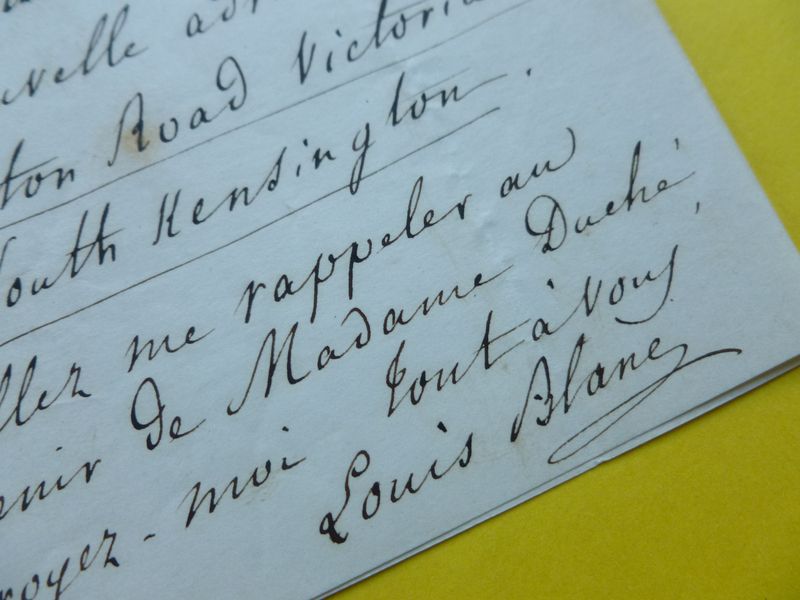 velle adr
ton Road Victoria
South Kensington.
llez me rappeler au
enir de Madame Duché,
royez-moi tout à vous
Louis Blanc